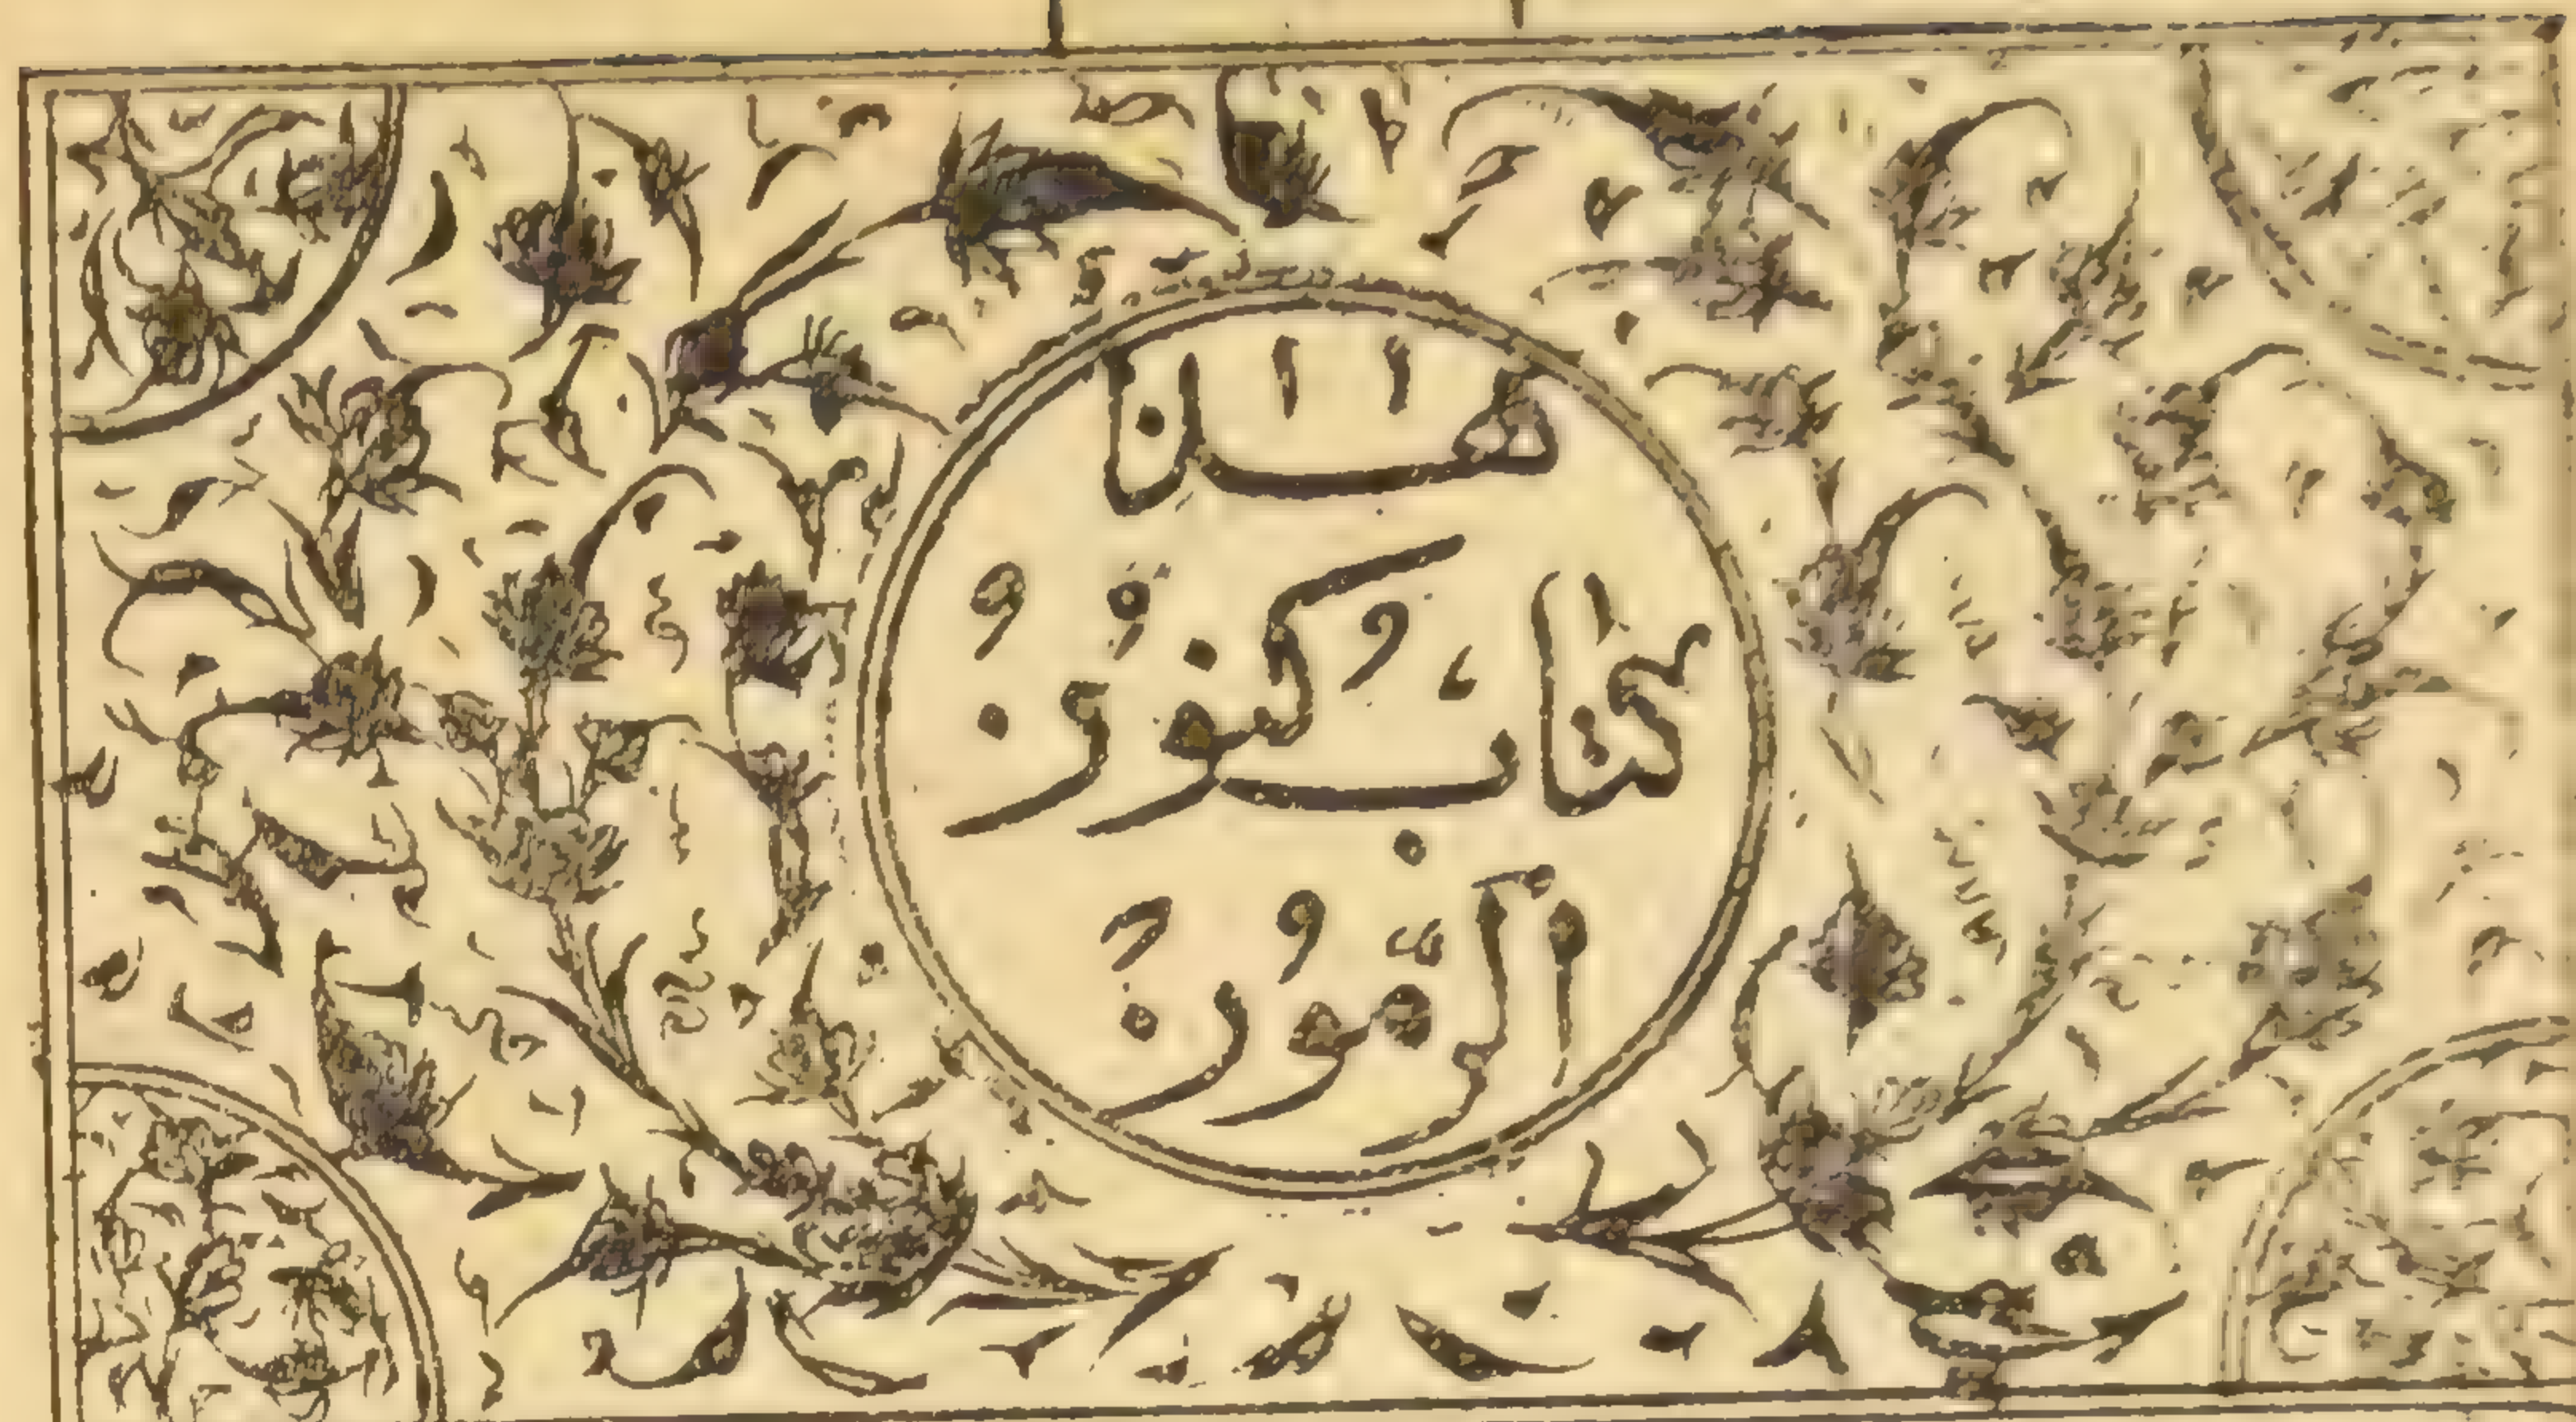 هذا
كتاب كنوز
الرموز